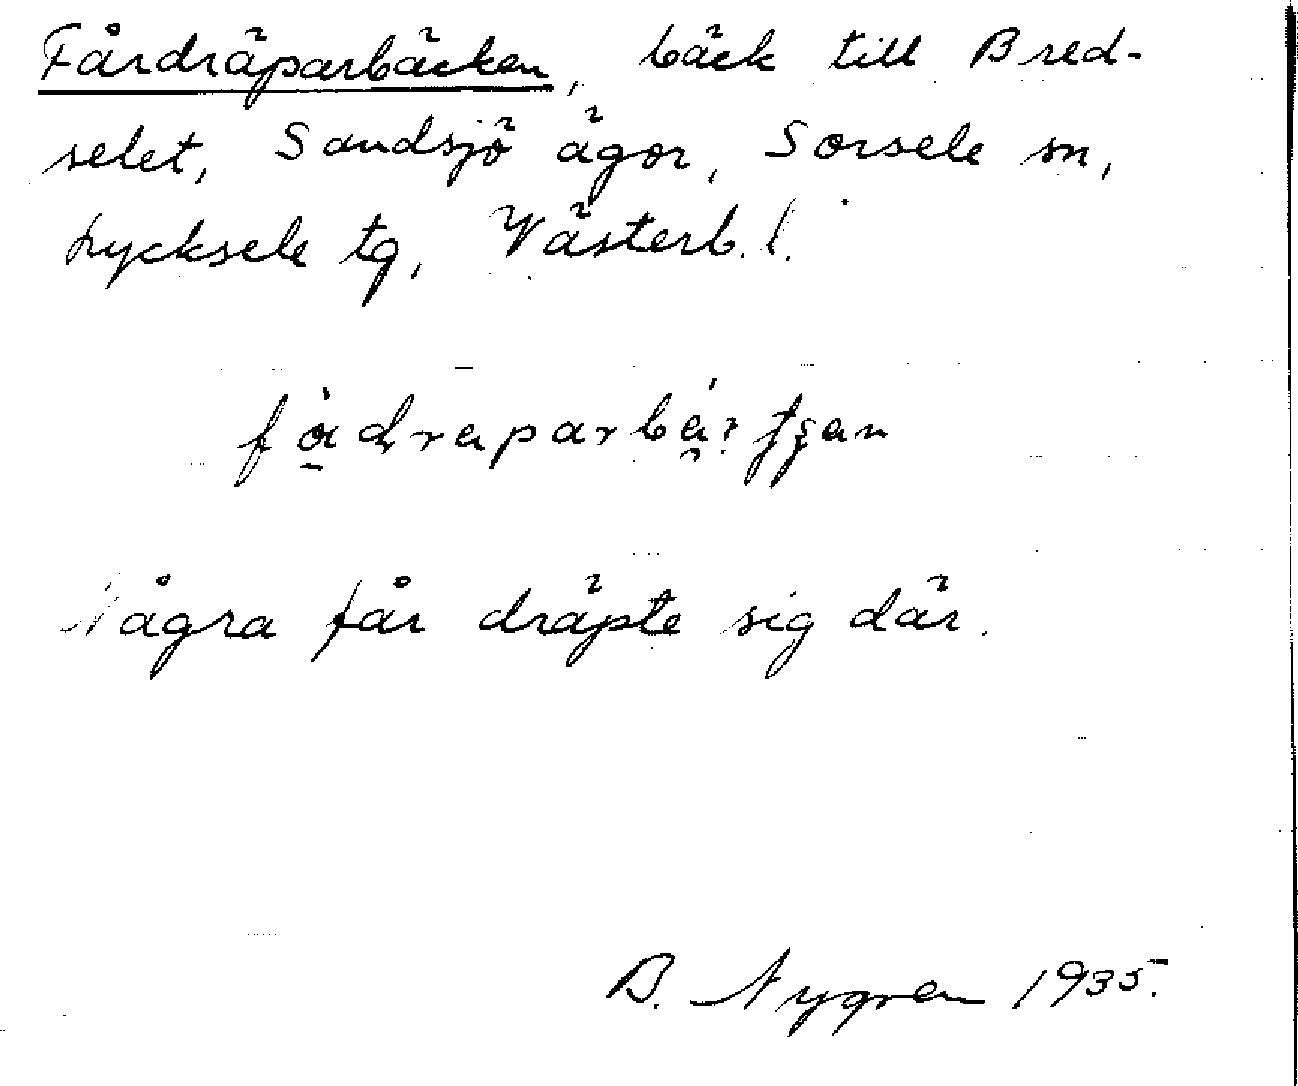 Fårdräparbäcken, bäck till Bred-
selet, Sandsjö ägor, Sorsele sn,
Lycksele tg, Västerb. l.
Några får dräpte sig där.
B. Nygren 1935.